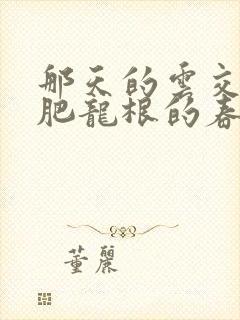 那天的雲交
肥龍根的春
董麗